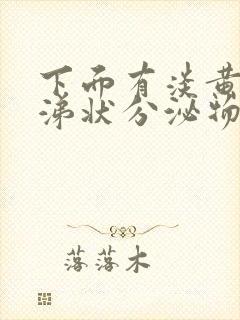 下而有淡黄
涕状分泌物
落落木